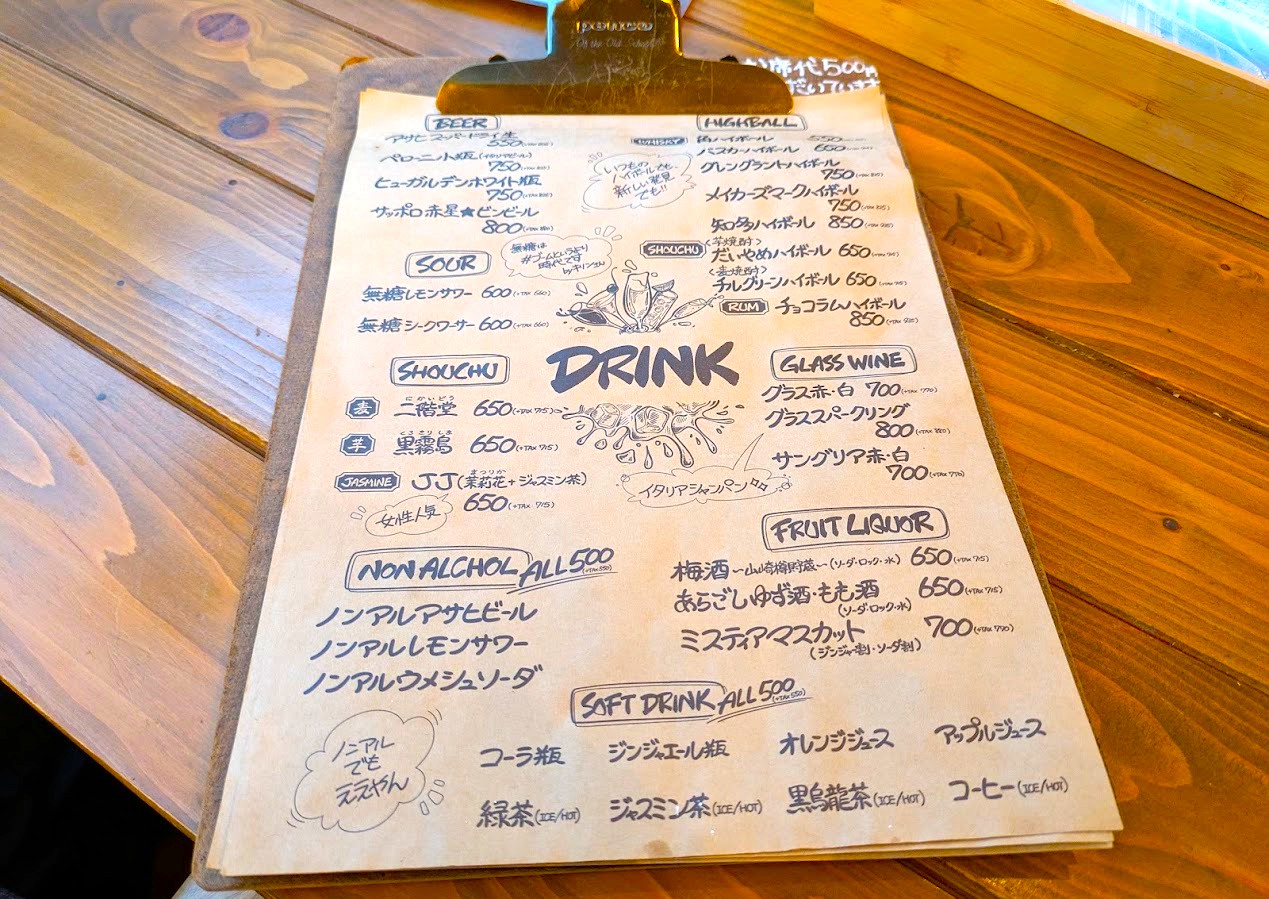 penco
席代500円
だいています
BEER
アサヒスーパードライ生
550
ペローニ小瓶(イタリアビール)
750(+TAX 825)
ヒューガルデンホワイト瓶
750(+TAX 825)
サッポロ赤星★ビンビール
800(+TAX 880)
SOUR
無糖は
#ブームというより
時代です
byキリンさん
無糖レモンサワー 600(+TAX 660)
無糖シークワーサー 600(+TAX 660)
SHOUCHU
にかいどう
麦 二階堂 650(+TAX 715)
くろきりしま
芋 黒霧島 650(+TAX 715)
まつりか
JASMINE JJ(茉莉花+ジャスミン茶)
650(+TAX 715)
女性人気
NON ALCHOL ALL 500
(+TAX 550)
ノンアルアサヒビール
ノンアルレモンサワー
ノンアルウメシュソーダ
ノンアル
でも
ええやん
DRINK
HIGHBALL
WHISKY 角ハイボール 550
バスカーハイボール 650
グレングラントハイボール
750(+TAX 825)
メイカーズマークハイボール
750(+TAX 825)
知多ハイボール 850(+TAX 935)
いつもの
ハイボールも、
新しい発見
でも!!
<芋焼酎>
SHOUCHU だいやめハイボール 650(+TAX 715)
<麦焼酎>
チルグリーンハイボール 650(+TAX 715)
RUM チョコラムハイボール
850(+TAX 935)
GLASS WINE
グラス赤・白 700(+TAX 770)
グラススパークリング
800(+TAX 880)
サングリア赤・白
700(+TAX 770)
イタリアシャンパン
FRUIT LIQUOR
梅酒〜山崎樽貯蔵〜(ソーダ・ロック・水) 650(+TAX 715)
あらごしゆず酒・もも酒 650(+TAX 715)
(ソーダ・ロック・水)
ミスティアマスカット 700(+TAX 770)
(ジンジャー割・ソーダ割)
SOFT DRINK ALL 500
(+TAX 550)
コーラ瓶 ジンジャエール瓶 オレンジジュース アップルジュース
緑茶(ICE/HOT) ジャスミン茶(ICE/HOT) 黒烏龍茶(ICE/HOT) コーヒー(ICE/HOT)